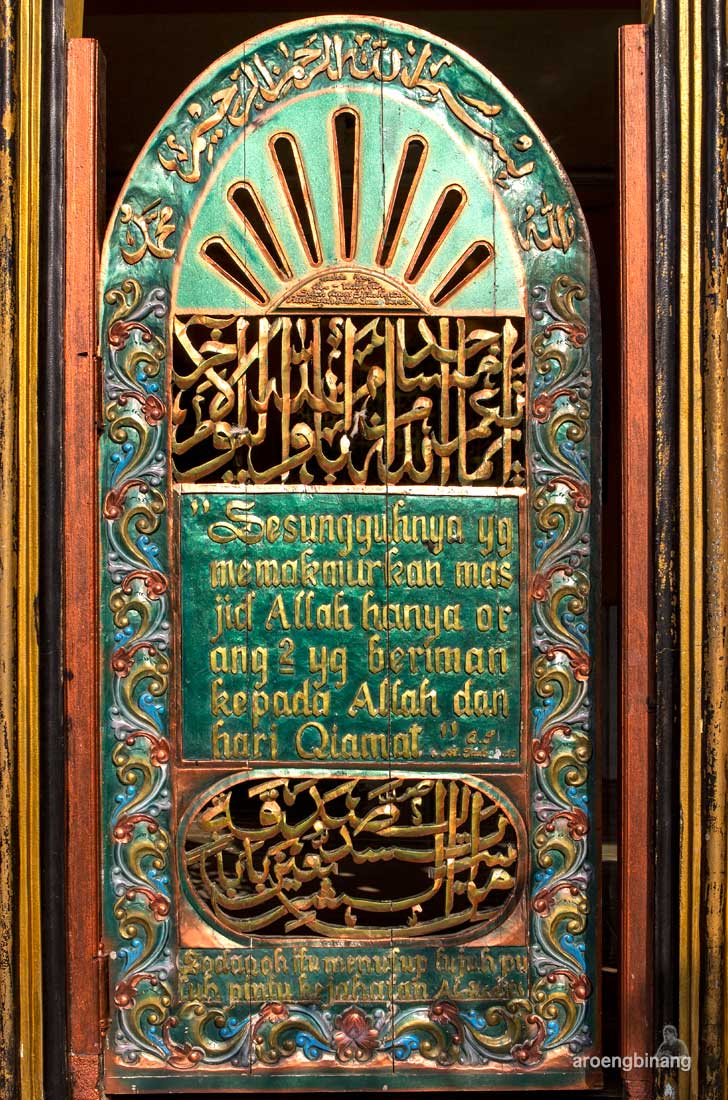 بسم الله الرحمن الرحيم
الله
محمد
انما يعمر مساجد الله من امن بالله واليوم الاخر
"Sesungguhnya yg
memakmurkan mas
jid Allah hanya or
ang 2 yg beriman
kepada Allah dan
hari Qiamat"
الصدقة تسد سبعين بابا من الشر
Sodaqoh itu menutup tujuh pu
luh pintu kejahatan
aroengbinang